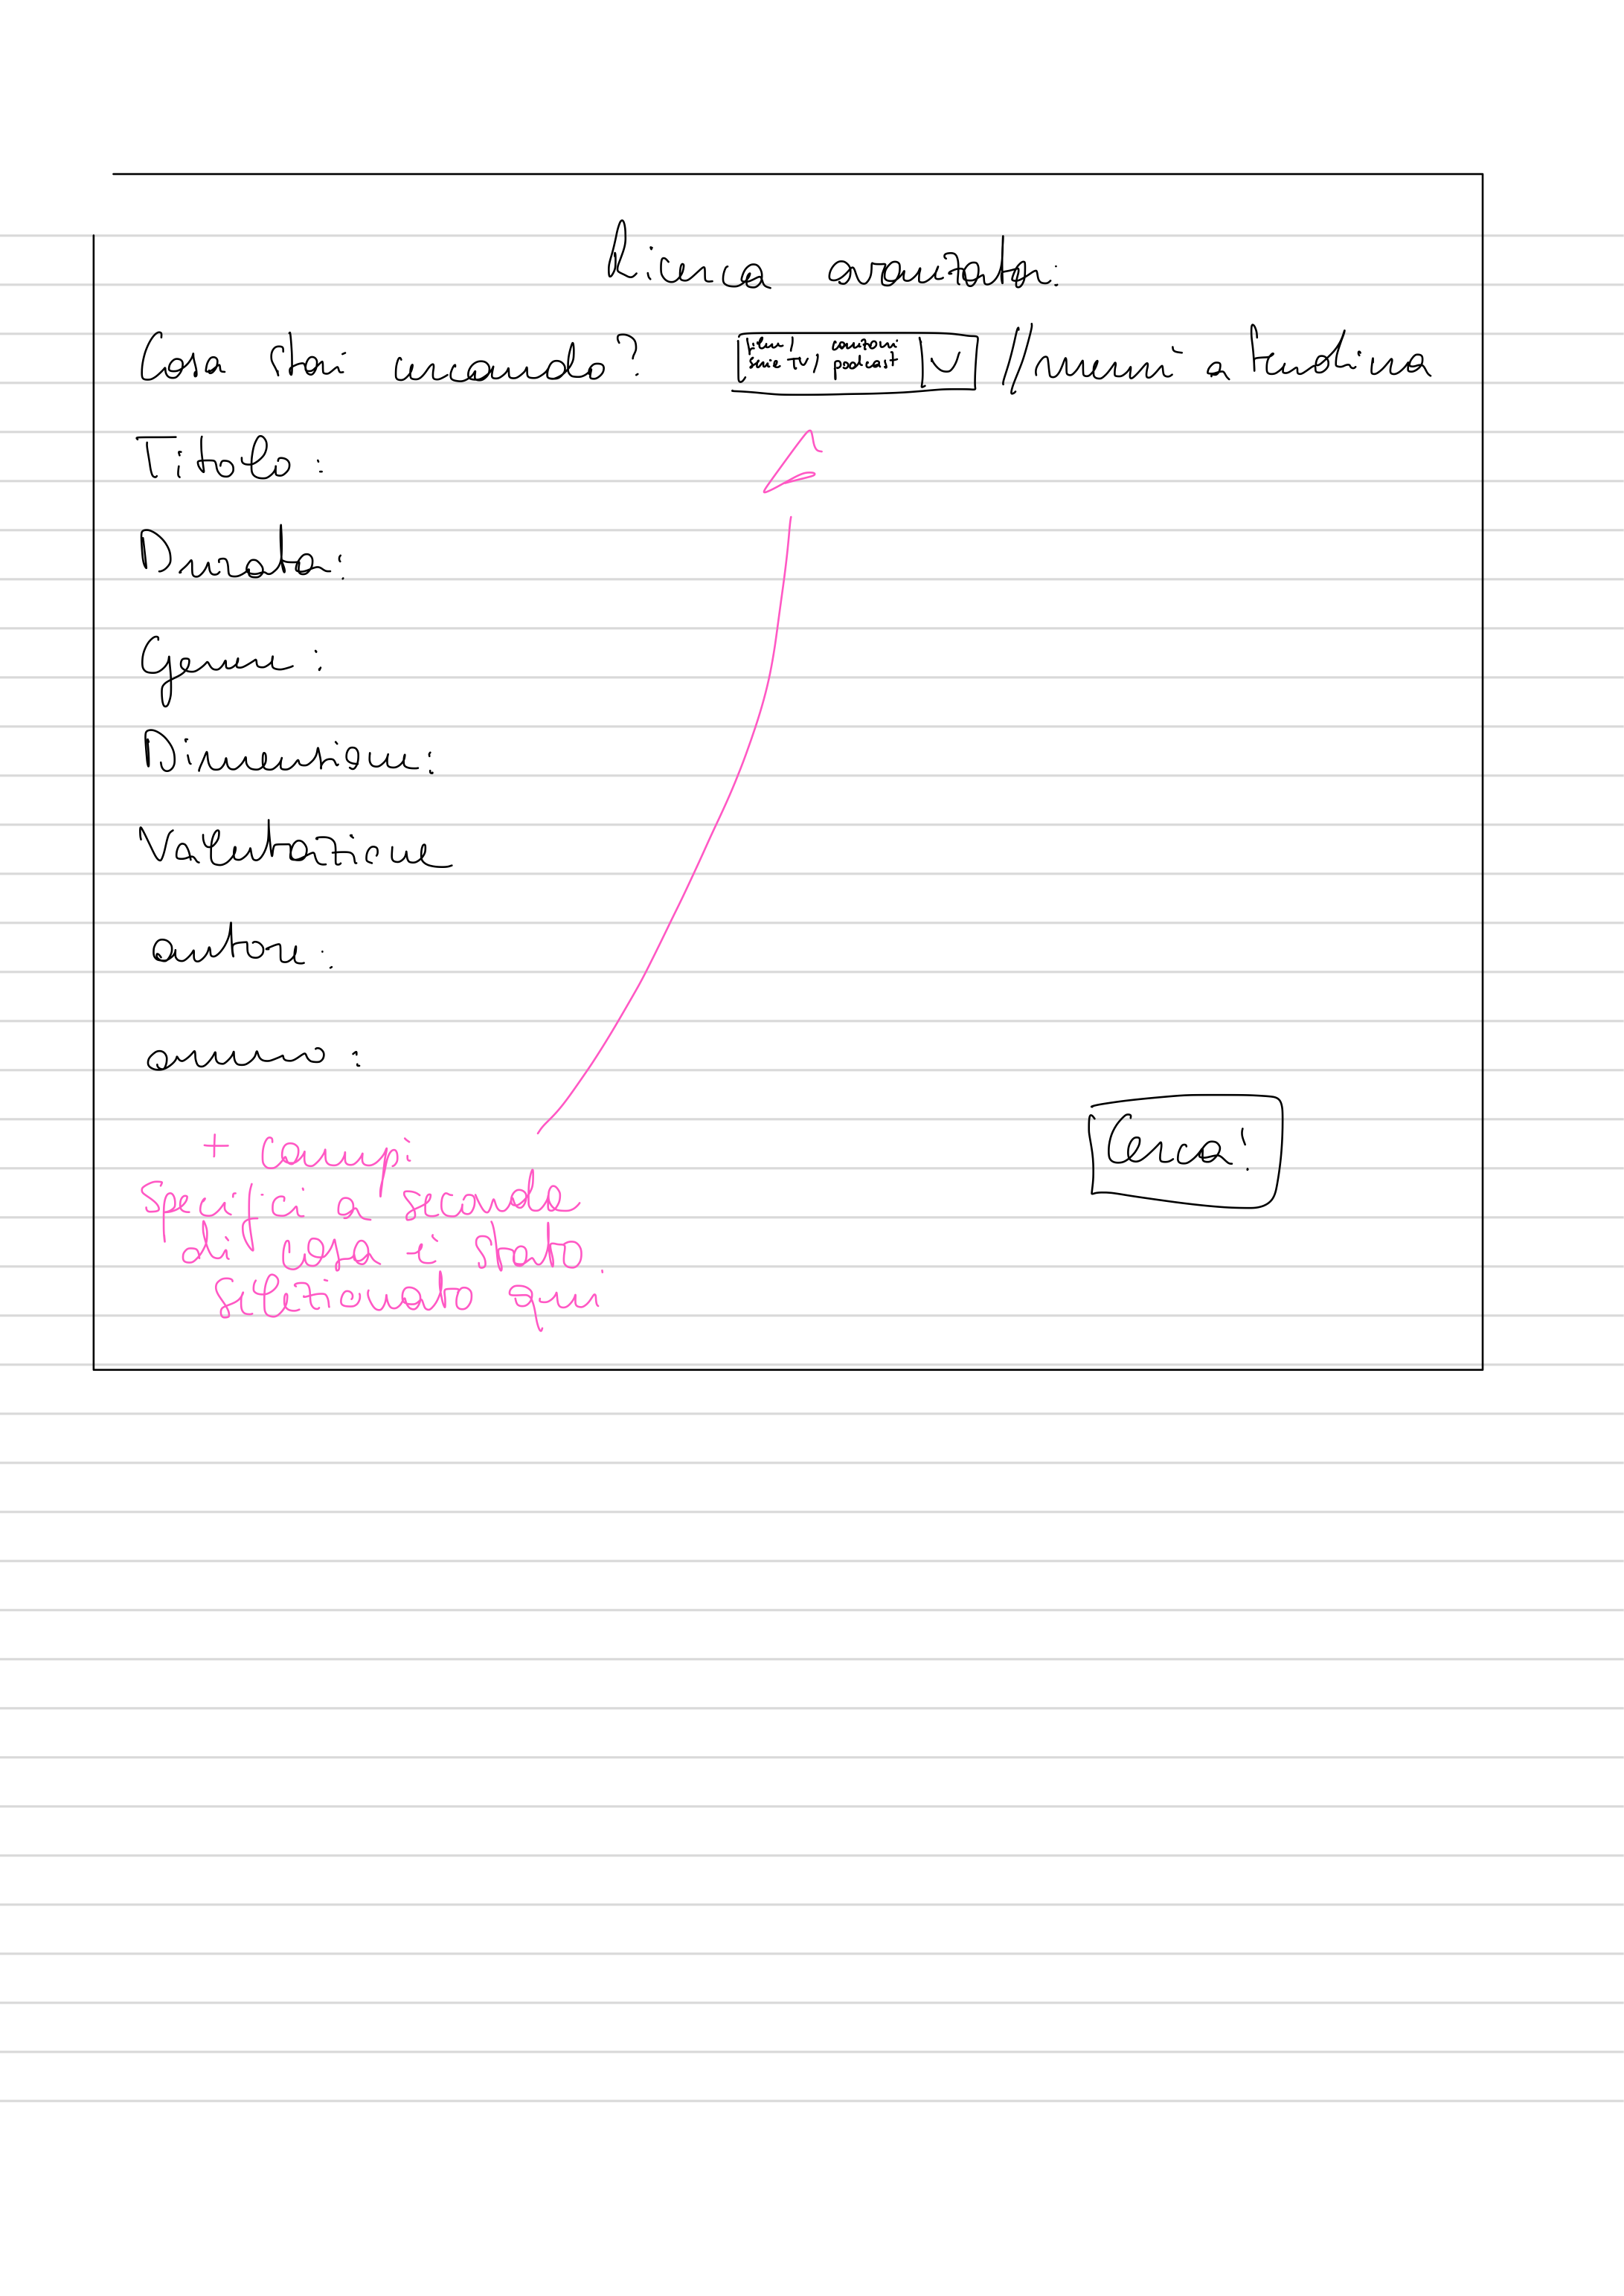 Ricerca avanzata:
Cosa stai cercando?
film, canzoni
serie TV, podcast
// menù a tendina
Titolo:
Durata:
Genere:
Dimensione:
Valutazione
autore:
anno:
Cerca!
+ campi
specifici a seconda
di cosa è stato
selezionato qui